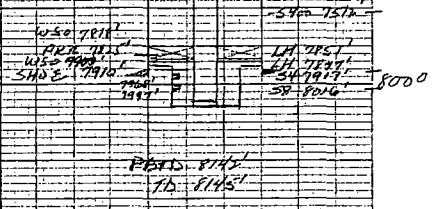 5400 7512
WSO 7818'
PKR 7825'
WSO 7900'
SHOE 7910'
7968'
7997'
LH 7851'
LH 7877'
S4 7917'
S8 8016'
8000
PBTD 8142'
TD 8145'